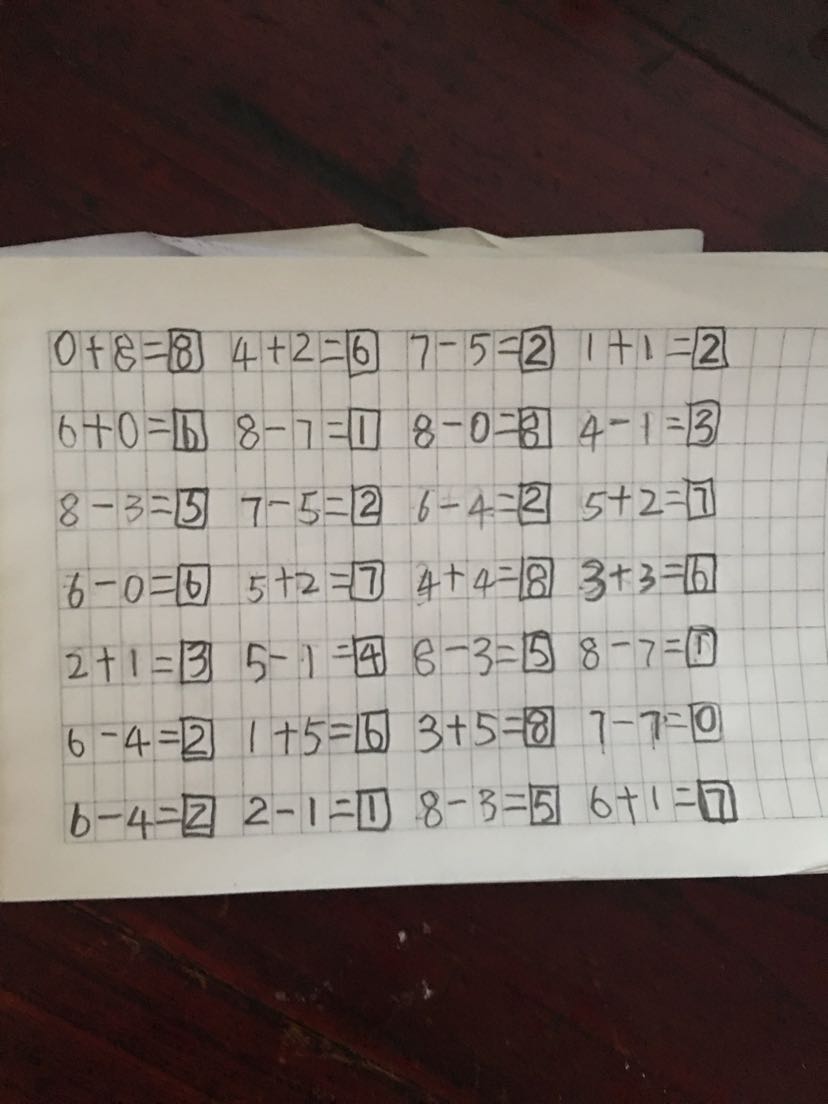 0+8=8 4+2=6 7-5=2 1+1=2
6+0=6 8-7=1 8-0=8 4-1=3
8-3=5 7-5=2 6-4=2 5+2=7
6-0=6 5+2=7 4+4=8 3+3=6
2+1=3 5-1=4 8-3=5 8-7=1
6-4=2 1+5=6 3+5=8 7-7=0
6-4=2 2-1=1 8-3=5 6+1=7